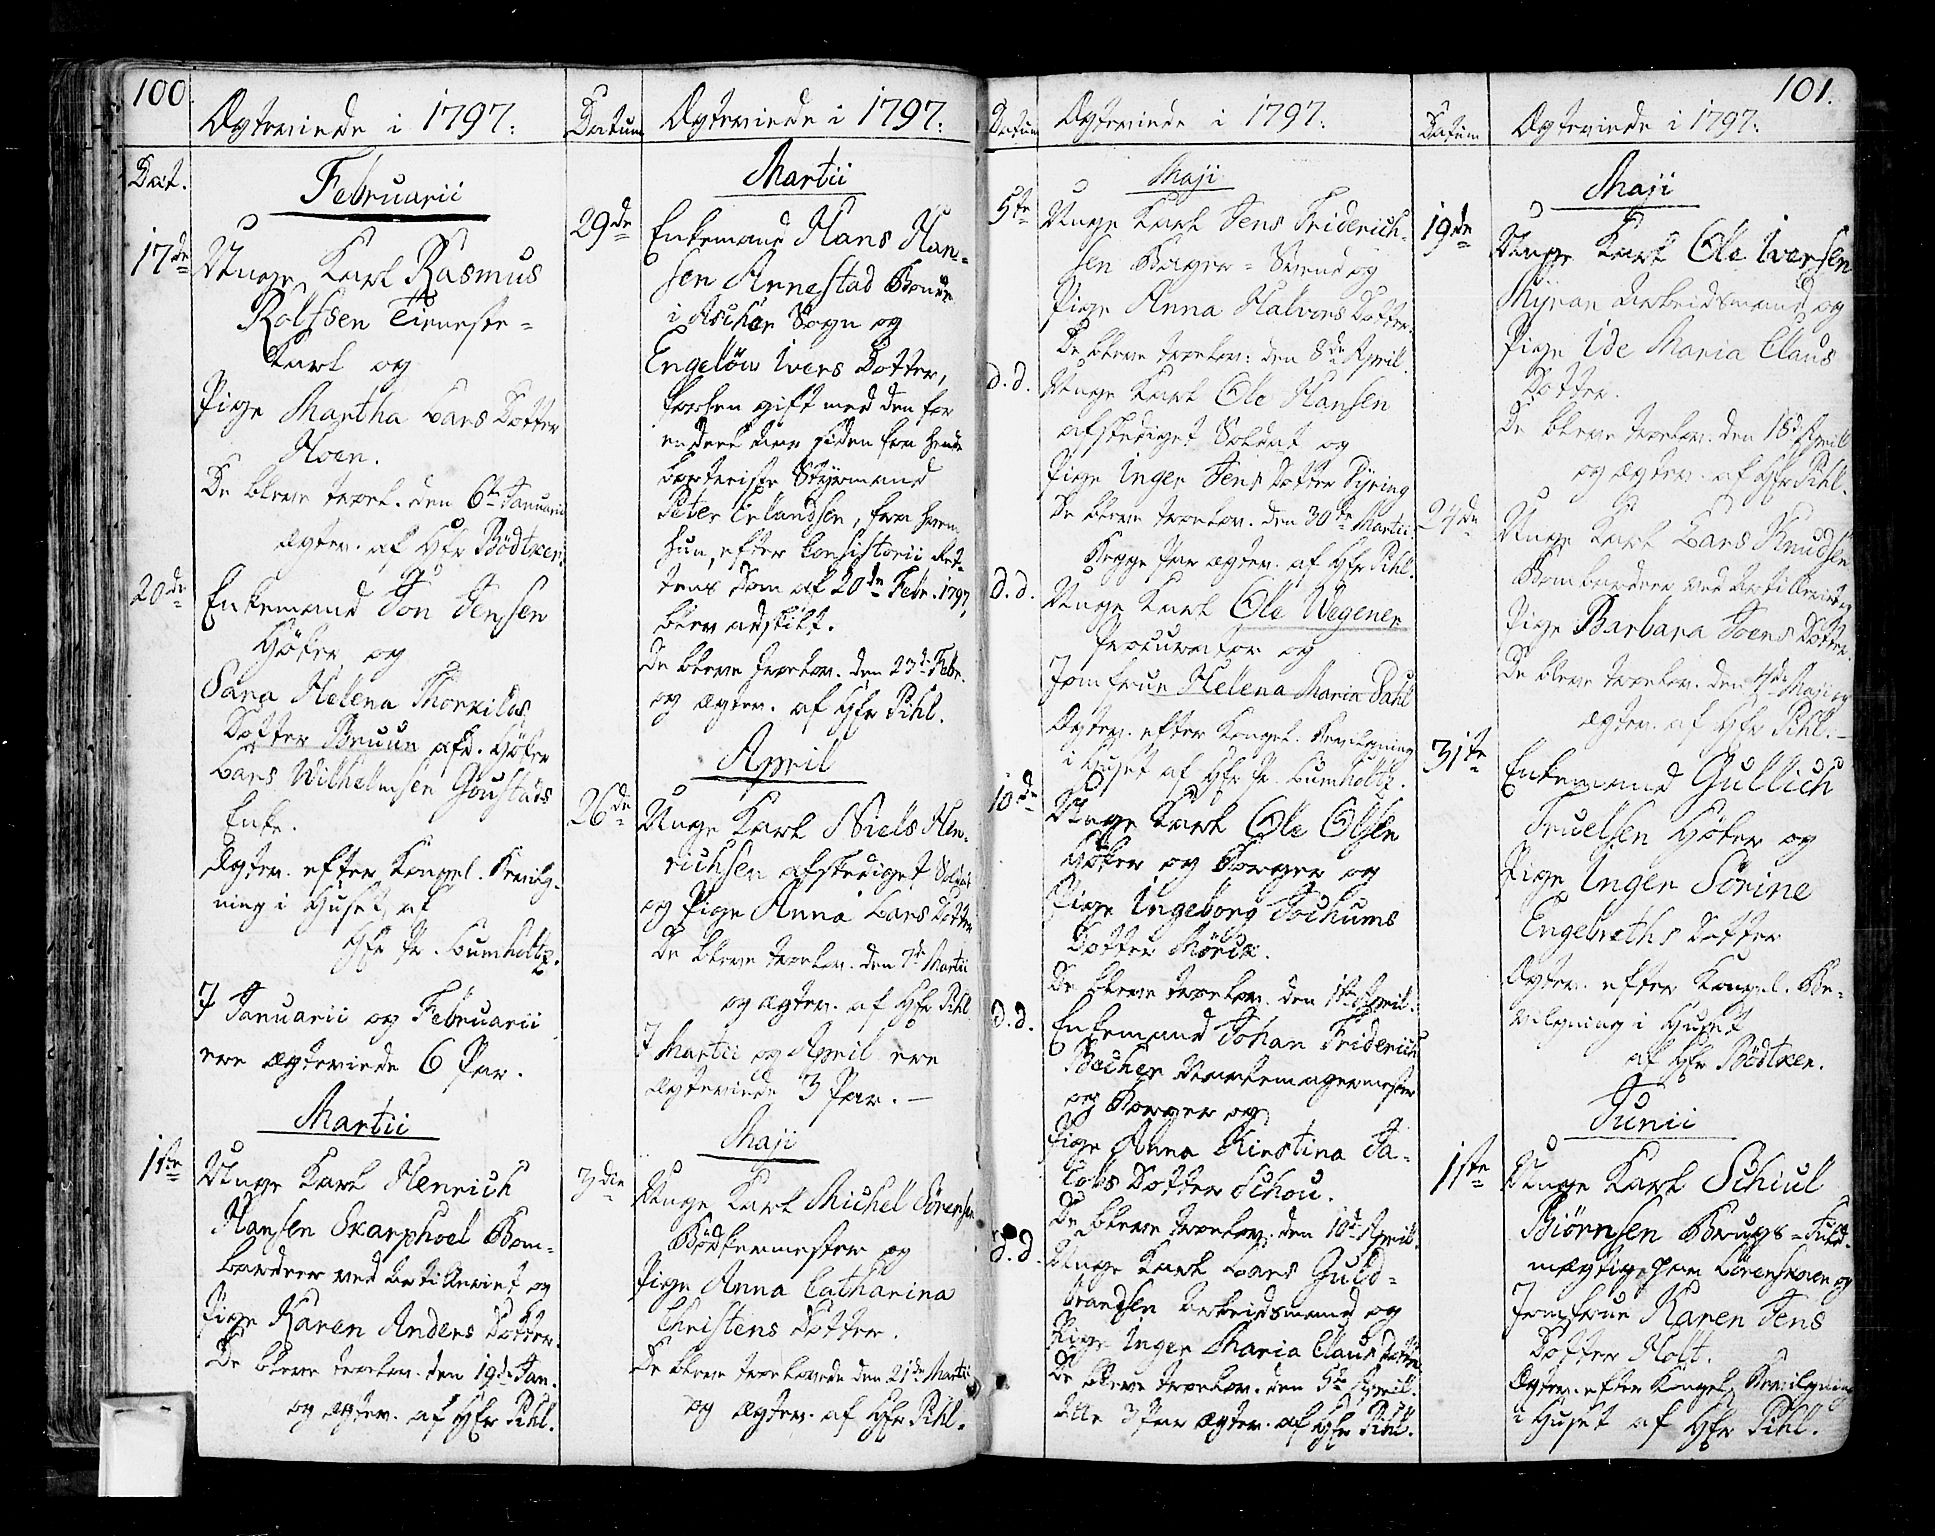 100
Ægteviede i 1797.
Dat.
Februarii
17de
Unge Karl Rasmus
Rolfsen Tieneste-
karl og
Pige Martha Lars Dotter
Hoen.
De bleve troel. den 6te Januarii
ægtev. af Hr Bödtker.
20de
Enkemand Jon Jensen
Höker og
Sara Helena Thorkilds
Dotter Bruun afd. Höker
Lars Wilhelmsen Goustads
Enke.
Ægtev. efter Kongel. Bevilg-
ning i Huset af
Hr P. Lumholtz.
I Januarii og Februarii
ere ægteviede 6 Par.
Martii
1ste
Unge Karl Henrich
Hansen Skarphoel Bom-
bardeer ved Artilleriet og
Pige Karen Anders Dotter.
De bleve troelov. den 19de Jan.
og ægtev. af Hr Pihl.
Datum
Ægteviede i 1797.
Martii
29de
Enkemand Hans Han-
sen Annestad Bonde
i Ascher Sogn og
Engelöw Ivers Dotter,
forhen gift med den for
endeel Aar siden fra hende
bortreiste Styrmand
Peter Erlandsen, fra hvem
hun, efter Consistorii Ret-
tens Dom af 20de Febr. 1797,
blev adskilt.
De bleve troelov. den 23de Febr.
og ægtev. af Hr Pihl.
April
26de
Unge Karl Niels Hen-
richsen afskediget Soldat
og Pige Anna Lars Dotter
De bleve troelov. den 7de Martii
og ægtev. af Hr Pihl
I Martii og April ere
ægteviede 3 Par.
Maji
3die
Unge Karl Michel Sörensen
Bödkermester og
Pige Anna Catharina
Christens Dotter.
De bleve troelovede den 21de Martii
og ægtev. af Hr Pihl.
Datum
Ægteviede i 1797.
Maji
5te
Unge Karl Jens Friderich-
sen Bager-Svend og
Pige Anna Halvors Dotter.
De bleve troelov: den 8de April.
d.d.
Unge Karl Ole Hansen
afskediget Soldat og
Pige Inger Jens Dotter Dyring
De bleve troelov. den 30te Martii.
Begge Par ægtev. af Hr Pihl.
d.d.
Unge Karl Ole Wegener
Procurator og
Jomfrue Helena Maria Dahl
Ægtev. efter Kongel. Bevilgning
i Huset af Hr P. Lumholtz.
10de
Unge Karl Ole Olsen
Höker og Borger og
Pige Ingeborg Jochums
Dotter Mörch.
De bleve troelov. den 1ste April.
d.d.
Enkemand Johan Friderich
Becher og Borger og
Pige Anna Kirstina Ja-
cobs Dotter Schou.
De bleve troelov. den 10de April.
d.d.
Unge Karl Lars Guld-
brandsen Arbeidsmand og
Pige Inger Maria Claus Dotter
De bleve troelov. den 5te April.
Alle 3 Par ægtev. af Hr Pihl.
101.
Datum
Ægteviede i 1797.
Maji
19de
Unge Karl Ole Iversen
Myran Arbeidsmand og
Pige Ide Maria Claus
Dotter.
De bleve troelov. den 18de April
og ægtev. af Hr Pihl.
Unge Karl Lars Knudsen
Bombardeer ved Artilleriet og
Pige Barbara Joens Dotter.
De bleve troelov. den 4de Maji og
ægtev. af Hr Pihl.
31te
Enkemand Gullich
Truelsen Höker og
Pige Inger Sörine
Engebreths Dotter
Ægtev. efter Kongel. Be-
vilgning i Huset
af Hr Bödtker.
Junii
1ste
Unge Karl Schiul
Biörnsen Brugs-Fuld-
mægtig paa Börenskoven og
Jomfrue Karen Jens
Dotter Holt.
Ægtev. efter Kongel. Bevilgning
i Huset af Hr Pihl.